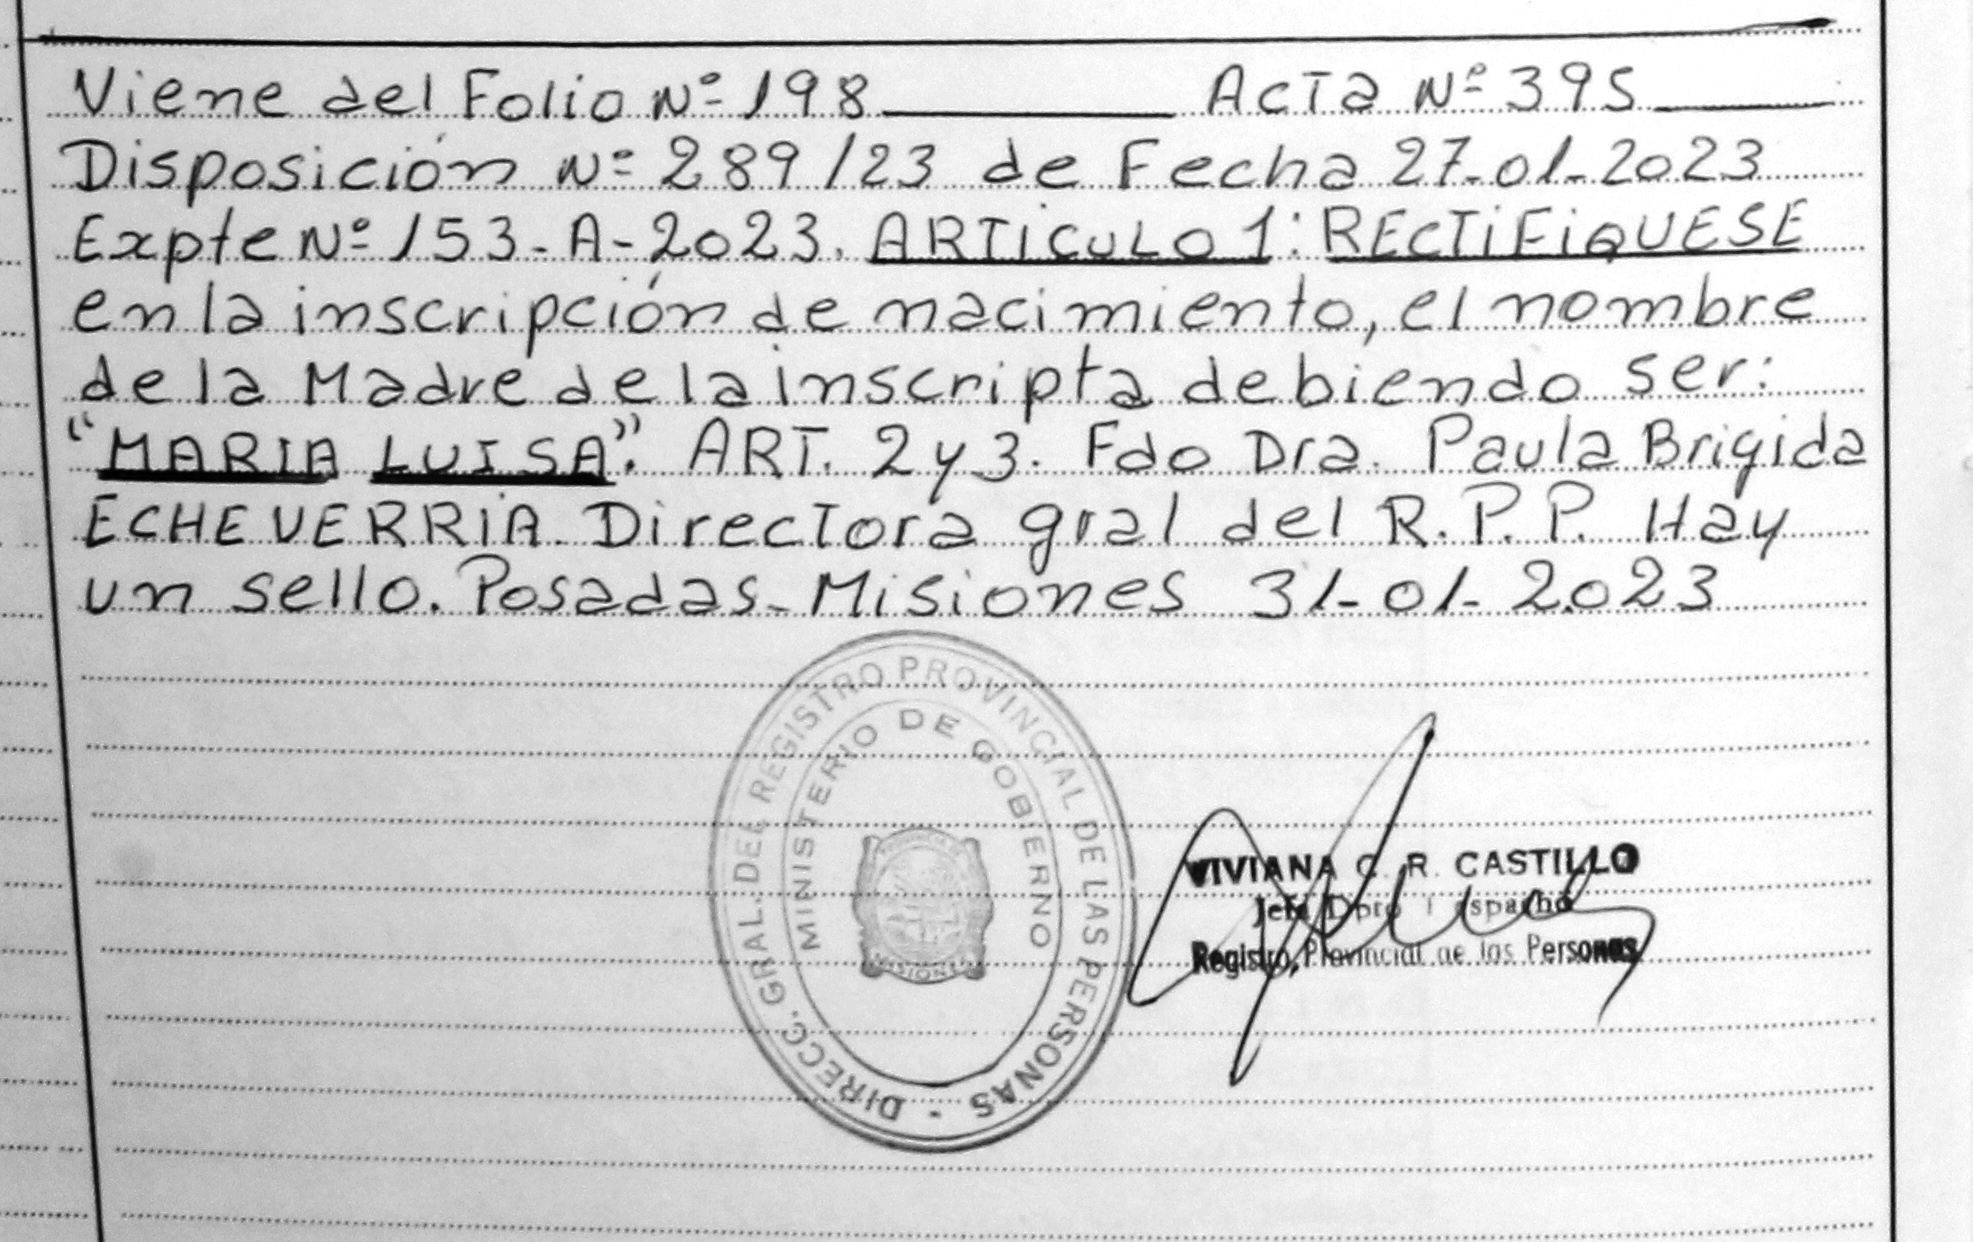 Viene del Folio Nº 198 Acta Nº 395
Disposición Nº 289/23 de Fecha 27-01-2023
Expte Nº 153-A-2023. ARTICULO 1: RECTIFIQUESE
en la inscripción de nacimiento, el nombre
de la Madre de la inscripta debiendo ser:
"MARIA LUISA". ART. 2 y 3. Fdo Dra. Paula Brigida
ECHEVERRIA. Directora gral del R.P.P. Hay
un sello. Posadas-Misiones 31-01-2023
DIRECC. GRAL. DEL REGISTRO PROVINCIAL DE LAS PERSONAS -
MINISTERIO DE GOBIERNO
MISIONES
VIVIANA C. R. CASTILLO
Jefa Dpto
Registro Provincial de las Personas